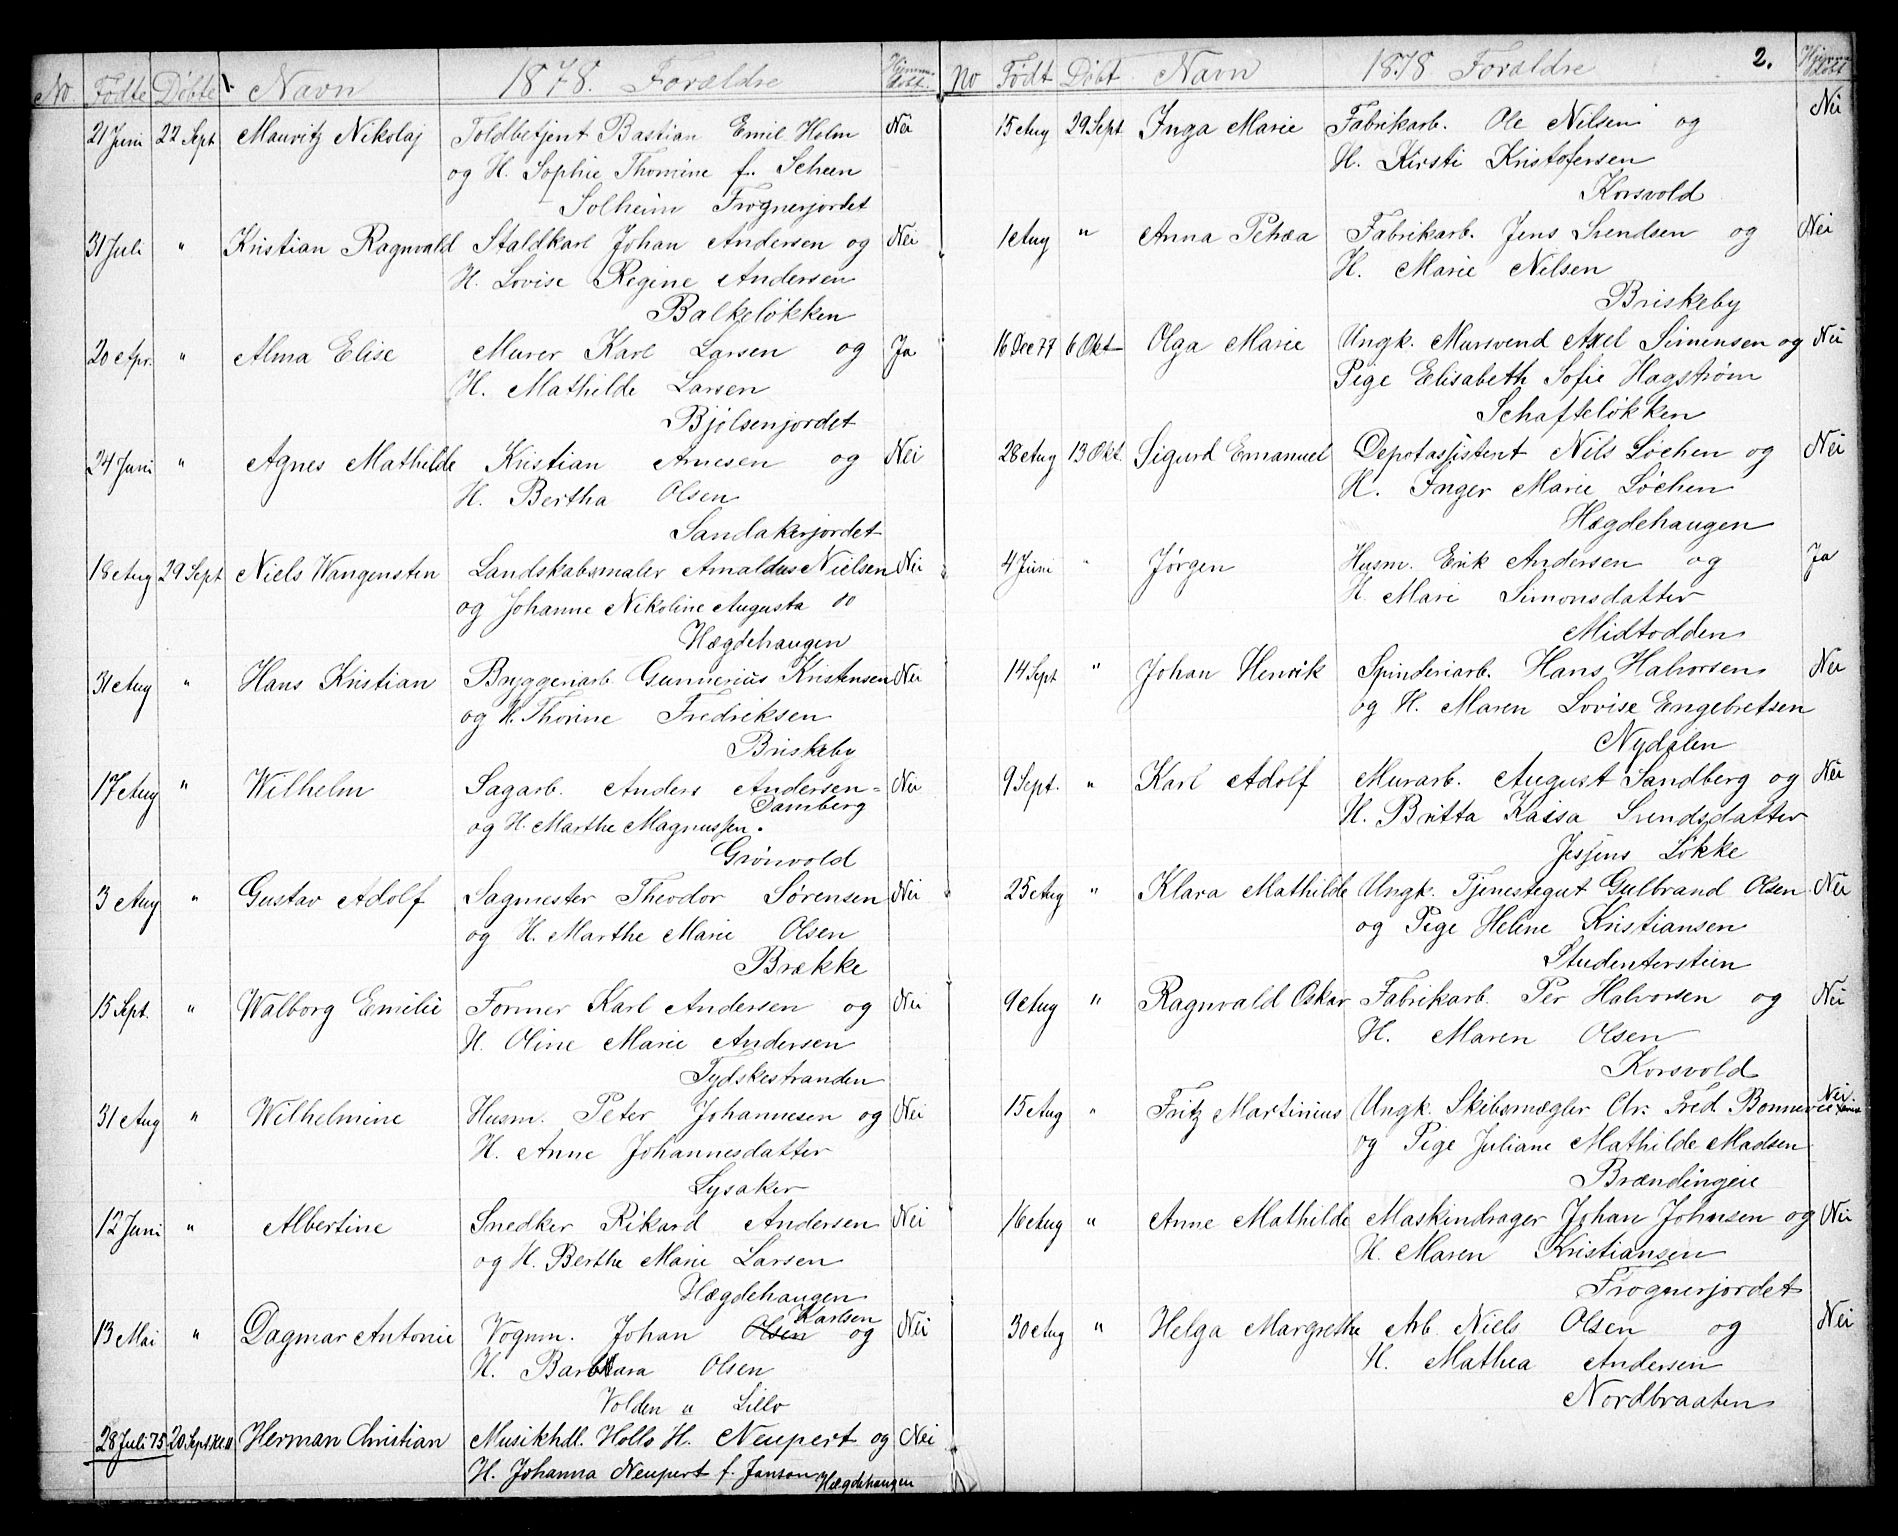 No Födte Döbte Navn 1878. Forældre Hjemmedöbt.
21 Juni 22 Sept Mauritz Nikolaj Toldbetjent Bastian Emil Holm Nei
og H. Sophie Thomine f. Scheen
Solheim Frognerjordet
31 Juli " Kristian Ragnvald Staldkarl Johan Andersen og Nei
H. Lovise Regine Andersen
Balkeløkken
20 Apr. " Alma Elise Murer Karl Larsen og Ja
H. Mathilde Larsen
Bjølsenjordet
24 Juni " Agnes Mathilde Kristian Arnesen og Nei
H. Bertha Olsen
Sandakerjordet
18 Aug 29 Sept Niels Wangensten Landskabsmaler Amaldus Nielsen Nei
og Johanne Nikoline Augusta do
Hægdehaugen
31 Aug " Hans Kristian Bryggeriarb Gunnerius Kristensen Nei
og H. Thorine Fredriksen
Briskeby
17 Aug " Wilhelm Sagarb. Anders Andersen= Nei
Damberg
og H. Marthe Magnussen.
Grønvold
3 Aug " Gustav Adolf Sagmester Theodor Sørensen Nei
og H. Marthe Marie Olsen
Brække
15 Sept. " Walborg Emilie Former Karl Andersen og Nei
H. Oline Marie Andersen
Tydskestranden
31 Aug " Wilhelmine Husm. Peter Johannesen og Nei
H. Anne Johannesdatter
Lysaker
12 Juni " Albertine Snedker Rikard Andersen Nei
og H. Berthe Marie Larsen
Hægdehaugen
Karlsen
13 Mai " Dagmar Antonie Vognm. Johan Olsen og Nei
H. Barbara Olsen
Volden " Lillo
28 Juli 75 20 Sept Kl. 11 Herman Christian Musikhdl. Hollo H. Neupert og Nei
H. Johanna Neupert f. Janson Hægdehaugen
2.
No Födt Döbt Navn 1878 Forældre Hjemmedöbt
15 Aug 29 Sept Inga Marie Fabrikarb. Ole Nilsen og Nei
H. Kirsti Kristofersen
Korsvold
1 Aug " Anna Petrea Fabrikarb. Jens Svendsen og Nei
H. Marie Nilsen
Briskeby
16 Dec 77 6 Okt Olga Marie Ungk. Mursvend Axel Simensen og Nei
Pige Elisabeth Sofie Hagstrøm
Schafteløkken
28 Aug 13 Okt. Sigurd Emanuel Depotassistent Nils Løchen og Nei
H. Inger Marie Løchen
Hægdehaugen
4 Juni " Jørgen Husm. Erik Andersen og Ja
H Mari Simonsdatter
Midtodden
14 Sept " Johan Henrik Spinderiarb. Hans Halvorsen Nei
og H. Maren Lovise Engebretsen
Nydalen
9 Sept. " Karl Adolf Murarb. August Sandberg og Nei
H. Britta Kaisa Svendsdatter
Jessens Løkke
25 Aug " Klara Mathilde Ungk. Tjenestegut Gulbrand Olsen Nei
og Pige Helene Kristiansen
Studenterstien
9 Aug " Ragnvald Oskar Fabrikarb. Per Halvorsen og Nei
H. Maren Olsen
Korsvold
15 Aug " Fritz Martinius Ungk. Skibsmægler Chr. Fred. Bonnevie Nei.
og Pige Juliane Mathilde Madsen
Brændingeie
16 Aug " Anne Mathilde Maskindrager Johan Johnsen og Nei
H. Maren Kristiansen
Frognerjordet
30 Aug " Helga Margrethe Arb. Niels Olsen og Nei
H. Mathea Andersen
Nordbraaten